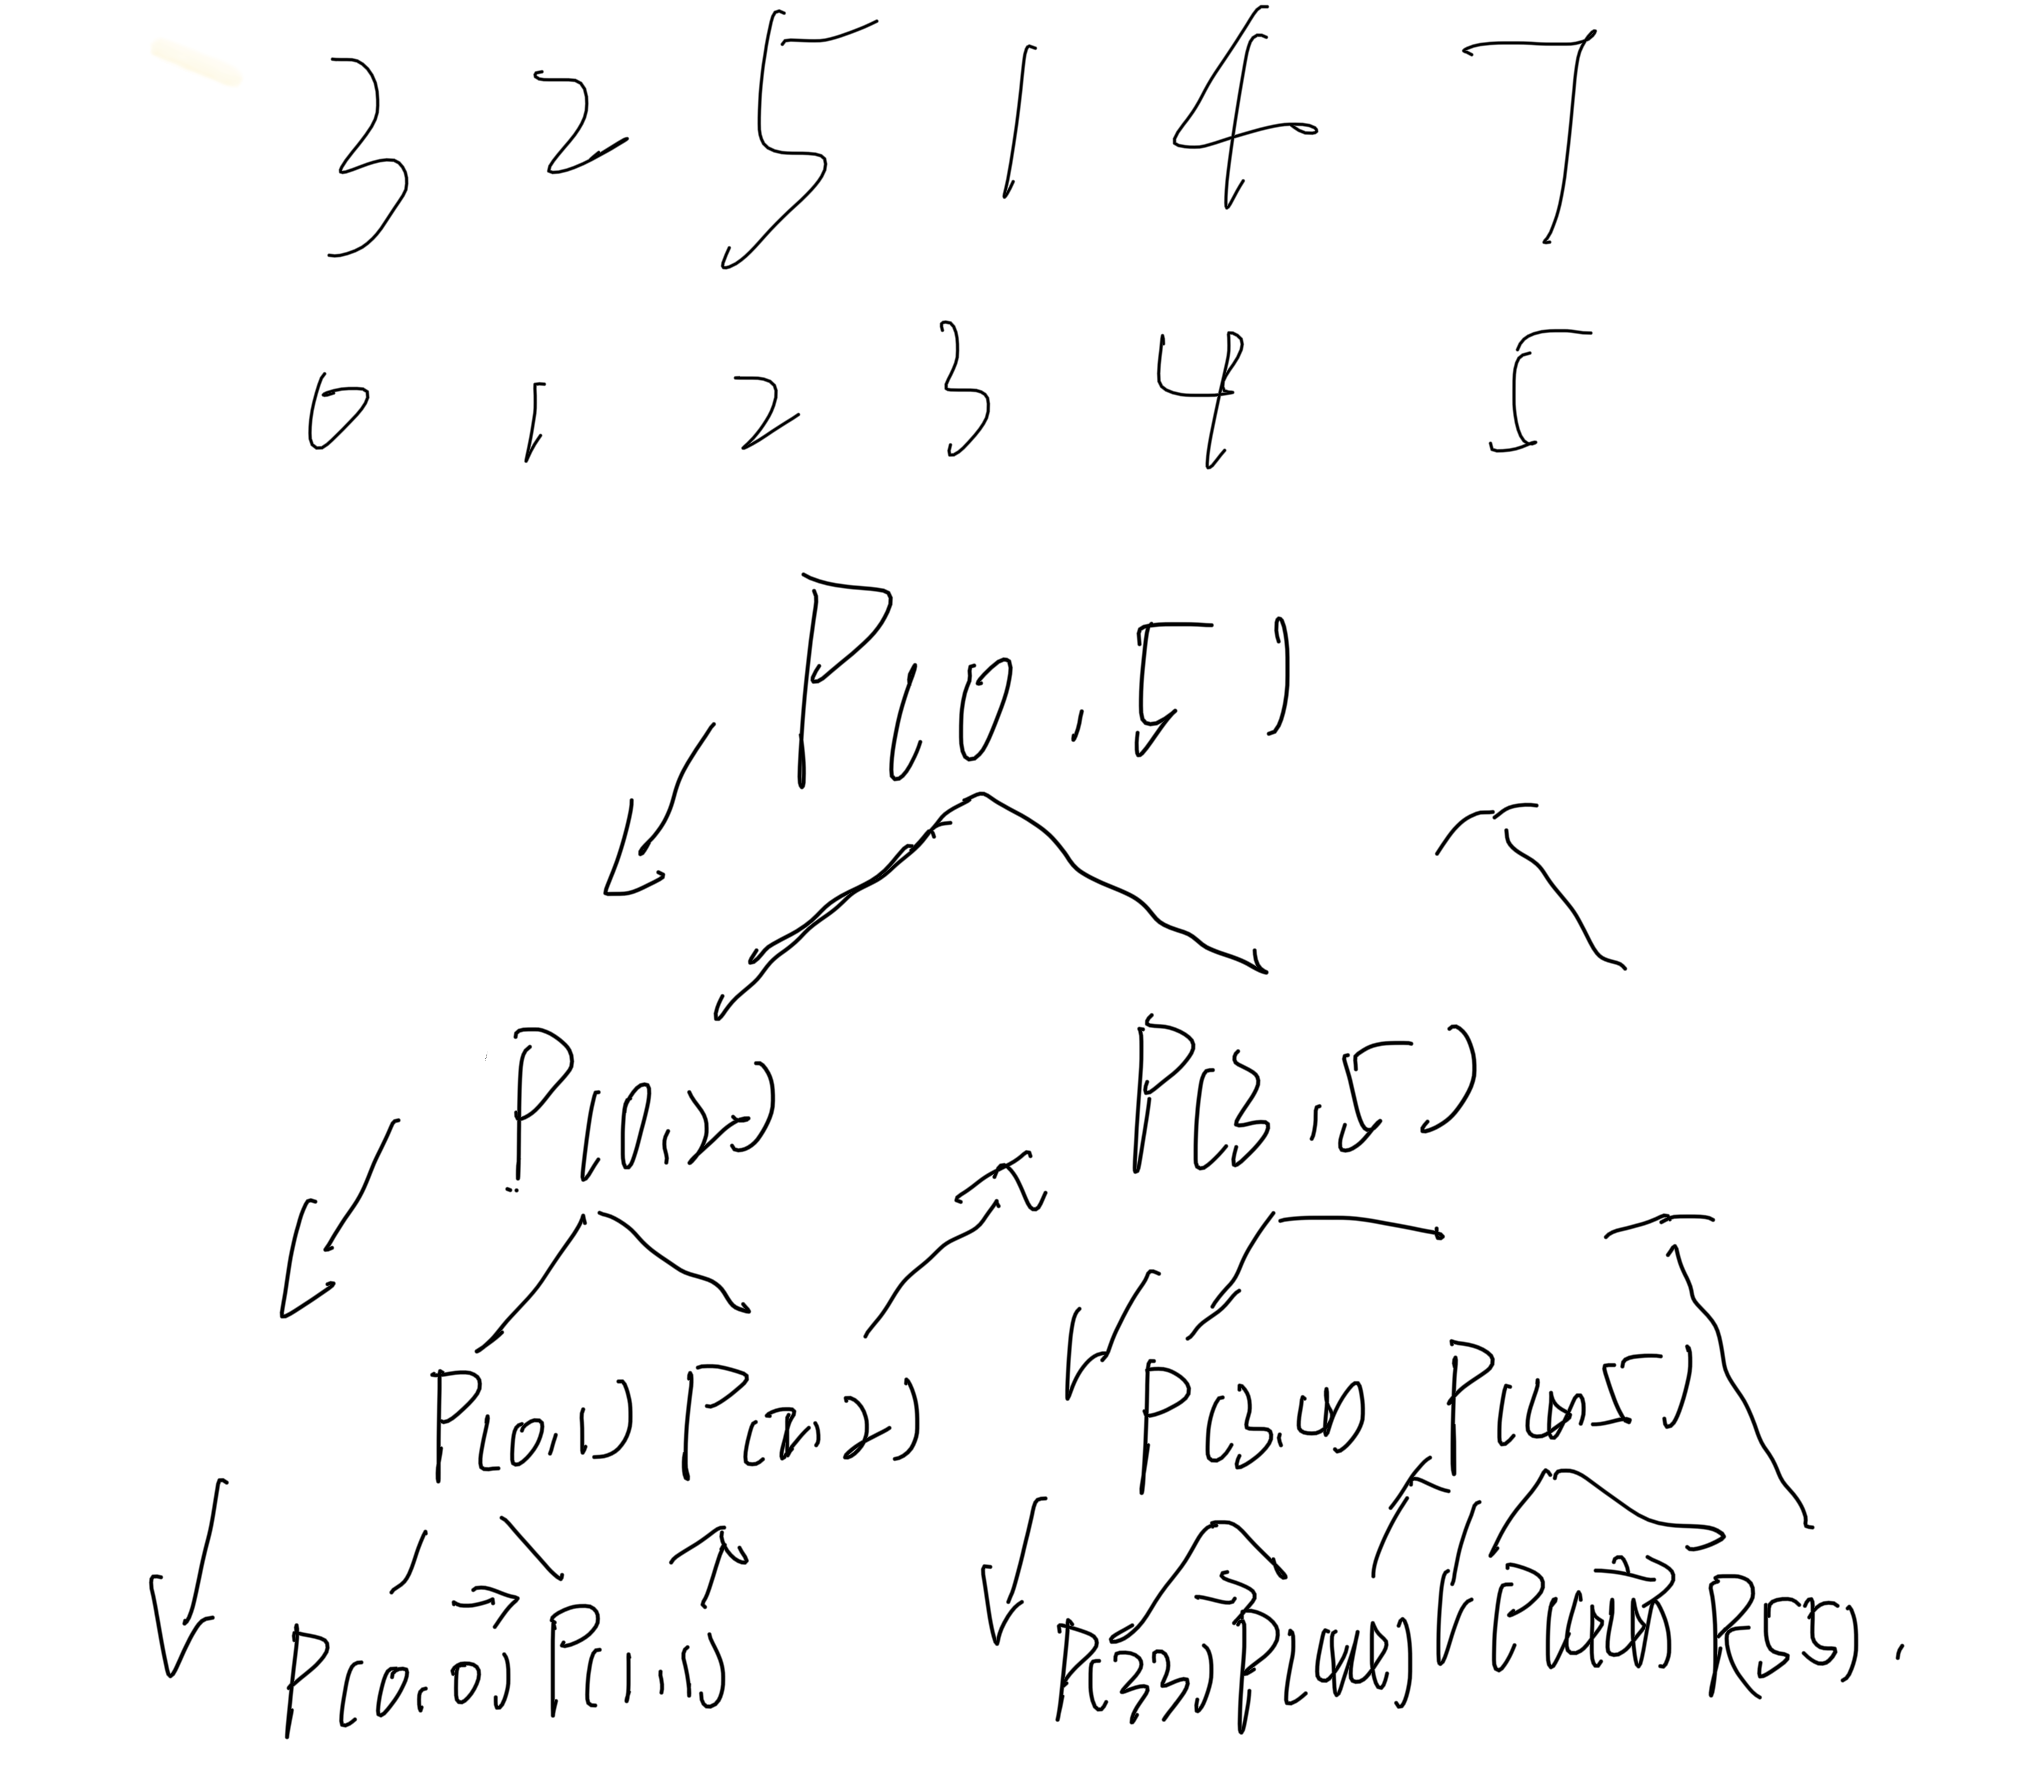 3 2 5 1 4 7
0 1 2 3 4 5
P(0,5)
P(0,2) P(3,5)
P(0,1) P(2,2) P(3,4) P(4,5)
P(0,0) P(1,1) P(3,3) P(4,4) P(4,4) P(5,5)